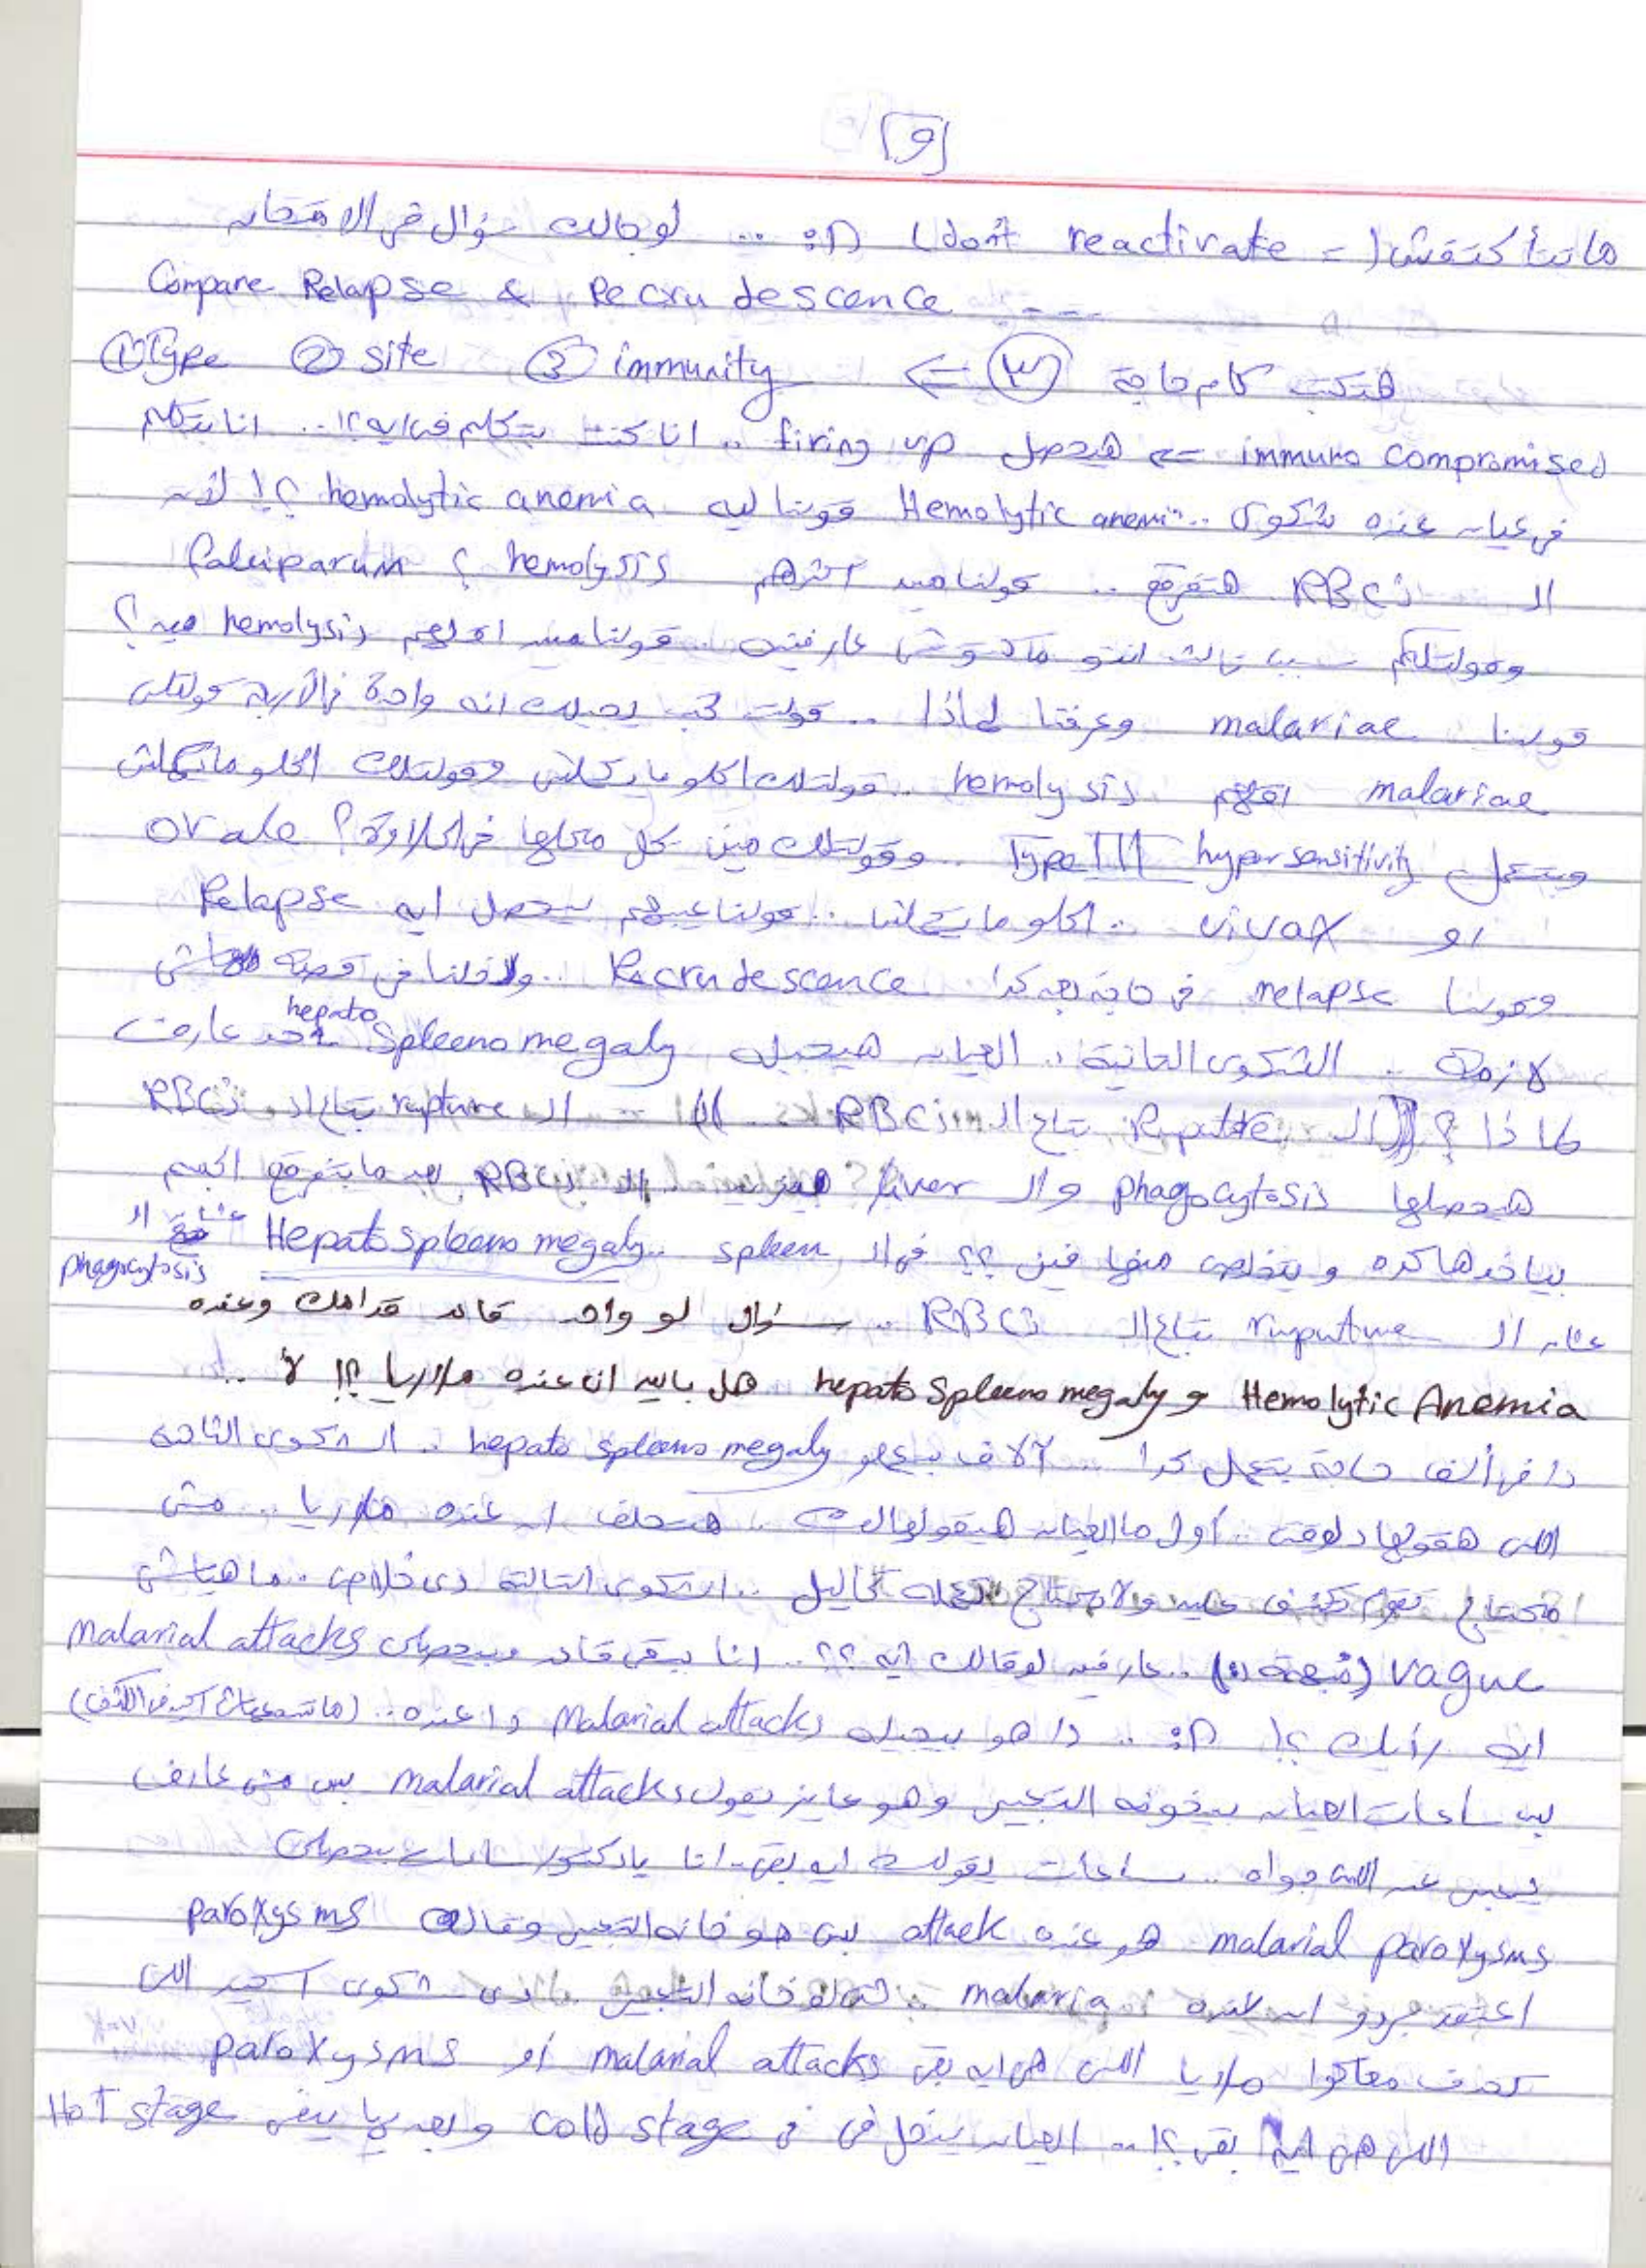 [9]
ماتتأكتفش (= don't reactivate) :D .. لو جالك سؤال في الامتحان
Compare Relapse & Recrudescence ----
هتكتب كام حاجة (٣) ← ① Type ② site ③ immunity
immuno compromised ⇐ هيحصل firing up .. انا كنت بتكلم في ايه؟! .. انا بتكلم
في عيان عنده شكوى .. Hemolytic anemia قولنا ليه hemolytic anemia ؟! لأن
الـ RBCs هتفرقع .. قولنا مين اكترهم hemolysis ؟ falciparum
وقولتلكم سبب تالت انتو ماكنتوش عارفينه .. قولنا مين اقلهم hemolysis فيه؟
قولنا malariae وعرفنا لماذا .. قولت لو جبلك انه واحدة في الأربعة قولتلك
malariae اقلهم hemolysis .. قولتلك اكلو مايكلش وقولتلك اكلو مايكلش
وبتعمل Type III hypersensitivity .. وقولتلك مين يحل محلها في الحلاوة؟ ovale
او vivax .. اكلو مايكلش .. قولنا عيهم بيحصل ايه Relapse
وقولنا relapse في حاجة بعد كدا Recrudescence .. ودخلنا في قصة مالهاش
لازمة .. الشكوى التانية .. العيان هيجيله hepato Spleenomegaly حد عارف
لماذا؟ الـ Rupture بتاع الـ RBCs .. الـ rupture بتاع الـ RBCs
هيحصلها phagocytosis والـ liver .. الـ RBCs بعد ما بتفرقع الجسم
بياخدها كده ويتخلص منها فين ؟؟ في الـ spleen .. Hepatospleenomegaly عشان الـ phagocytosis
عشان الـ ruputure بتاع الـ RBCs .. سؤال لو واحد قاعد قدامك وعنده
Hemolytic Anemia و hepatospleenomegaly هل بالك ان عنده ملاريا ؟! لأ ..
دا في ألف حاجة بتعمل كدا .. آلاف بيعملو hepato spleenomegaly .. الشكوى التالتة
اللى هقولها دلوقت .. أول ما العيان هيقولهالك .. هتحلف ان عنده ملاريا .. مش
محتاج تقوم تكشف عليه ولا تحتاج تعمله تحاليل .. الشكوى التالتة دى خلاص .. ماهياش
vague (مبهمة) .. عارفين لو قالك ايه ؟؟ .. انا ببقى قاعد وبيحصلى malarial attacks
ايه رأيك ؟! :D .. دا هو بيجيله Malarial attacks واعنده ..
بس ساعات العيان بيخونه التعبير وهو عايز يقول malarial attacks بس مش عارف
يعبر عن اللى جواه .. ساعات يقولك ايه بقى .. انا يا دكتور ساعات بيحصلى
malarial paroxysms هو عنده attack بس هو خانه التعبير وقالك paroxysms
اعتقد بردو ان عنده malaria .. خانه التعبير .. دى شكوى اكيد اللى
تعرف معاها ملاريا اللى هى ايه بقى malarial attacks أو paroxysms
اللى هى ايه بقى؟! .. العيان بيدخل في cold stage وبعديها يبقى Hot stage